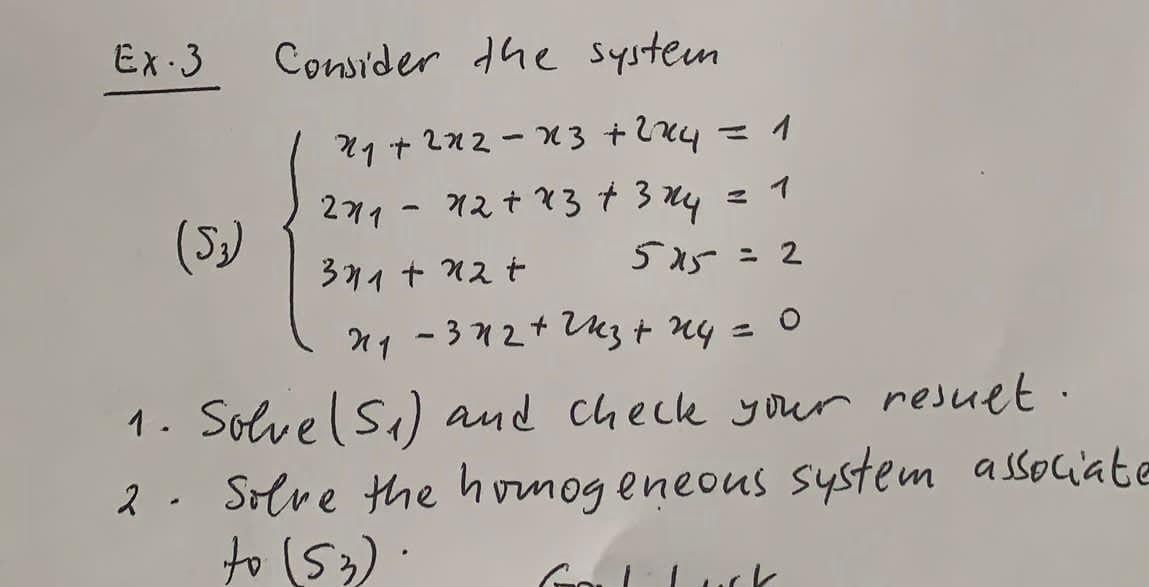 Ex.3 Consider the system
x1 + 2x2 - x3 + 2x4 = 1
2x1 - x2 + x3 + 3x4 = 1
(S3)
3x1 + x2 + 5x5 = 2
x1 - 3x2 + 2x3 + x4 = 0
1. Solve (S1) and check your result.
2. Solve the homogeneous system associate
to (S3).